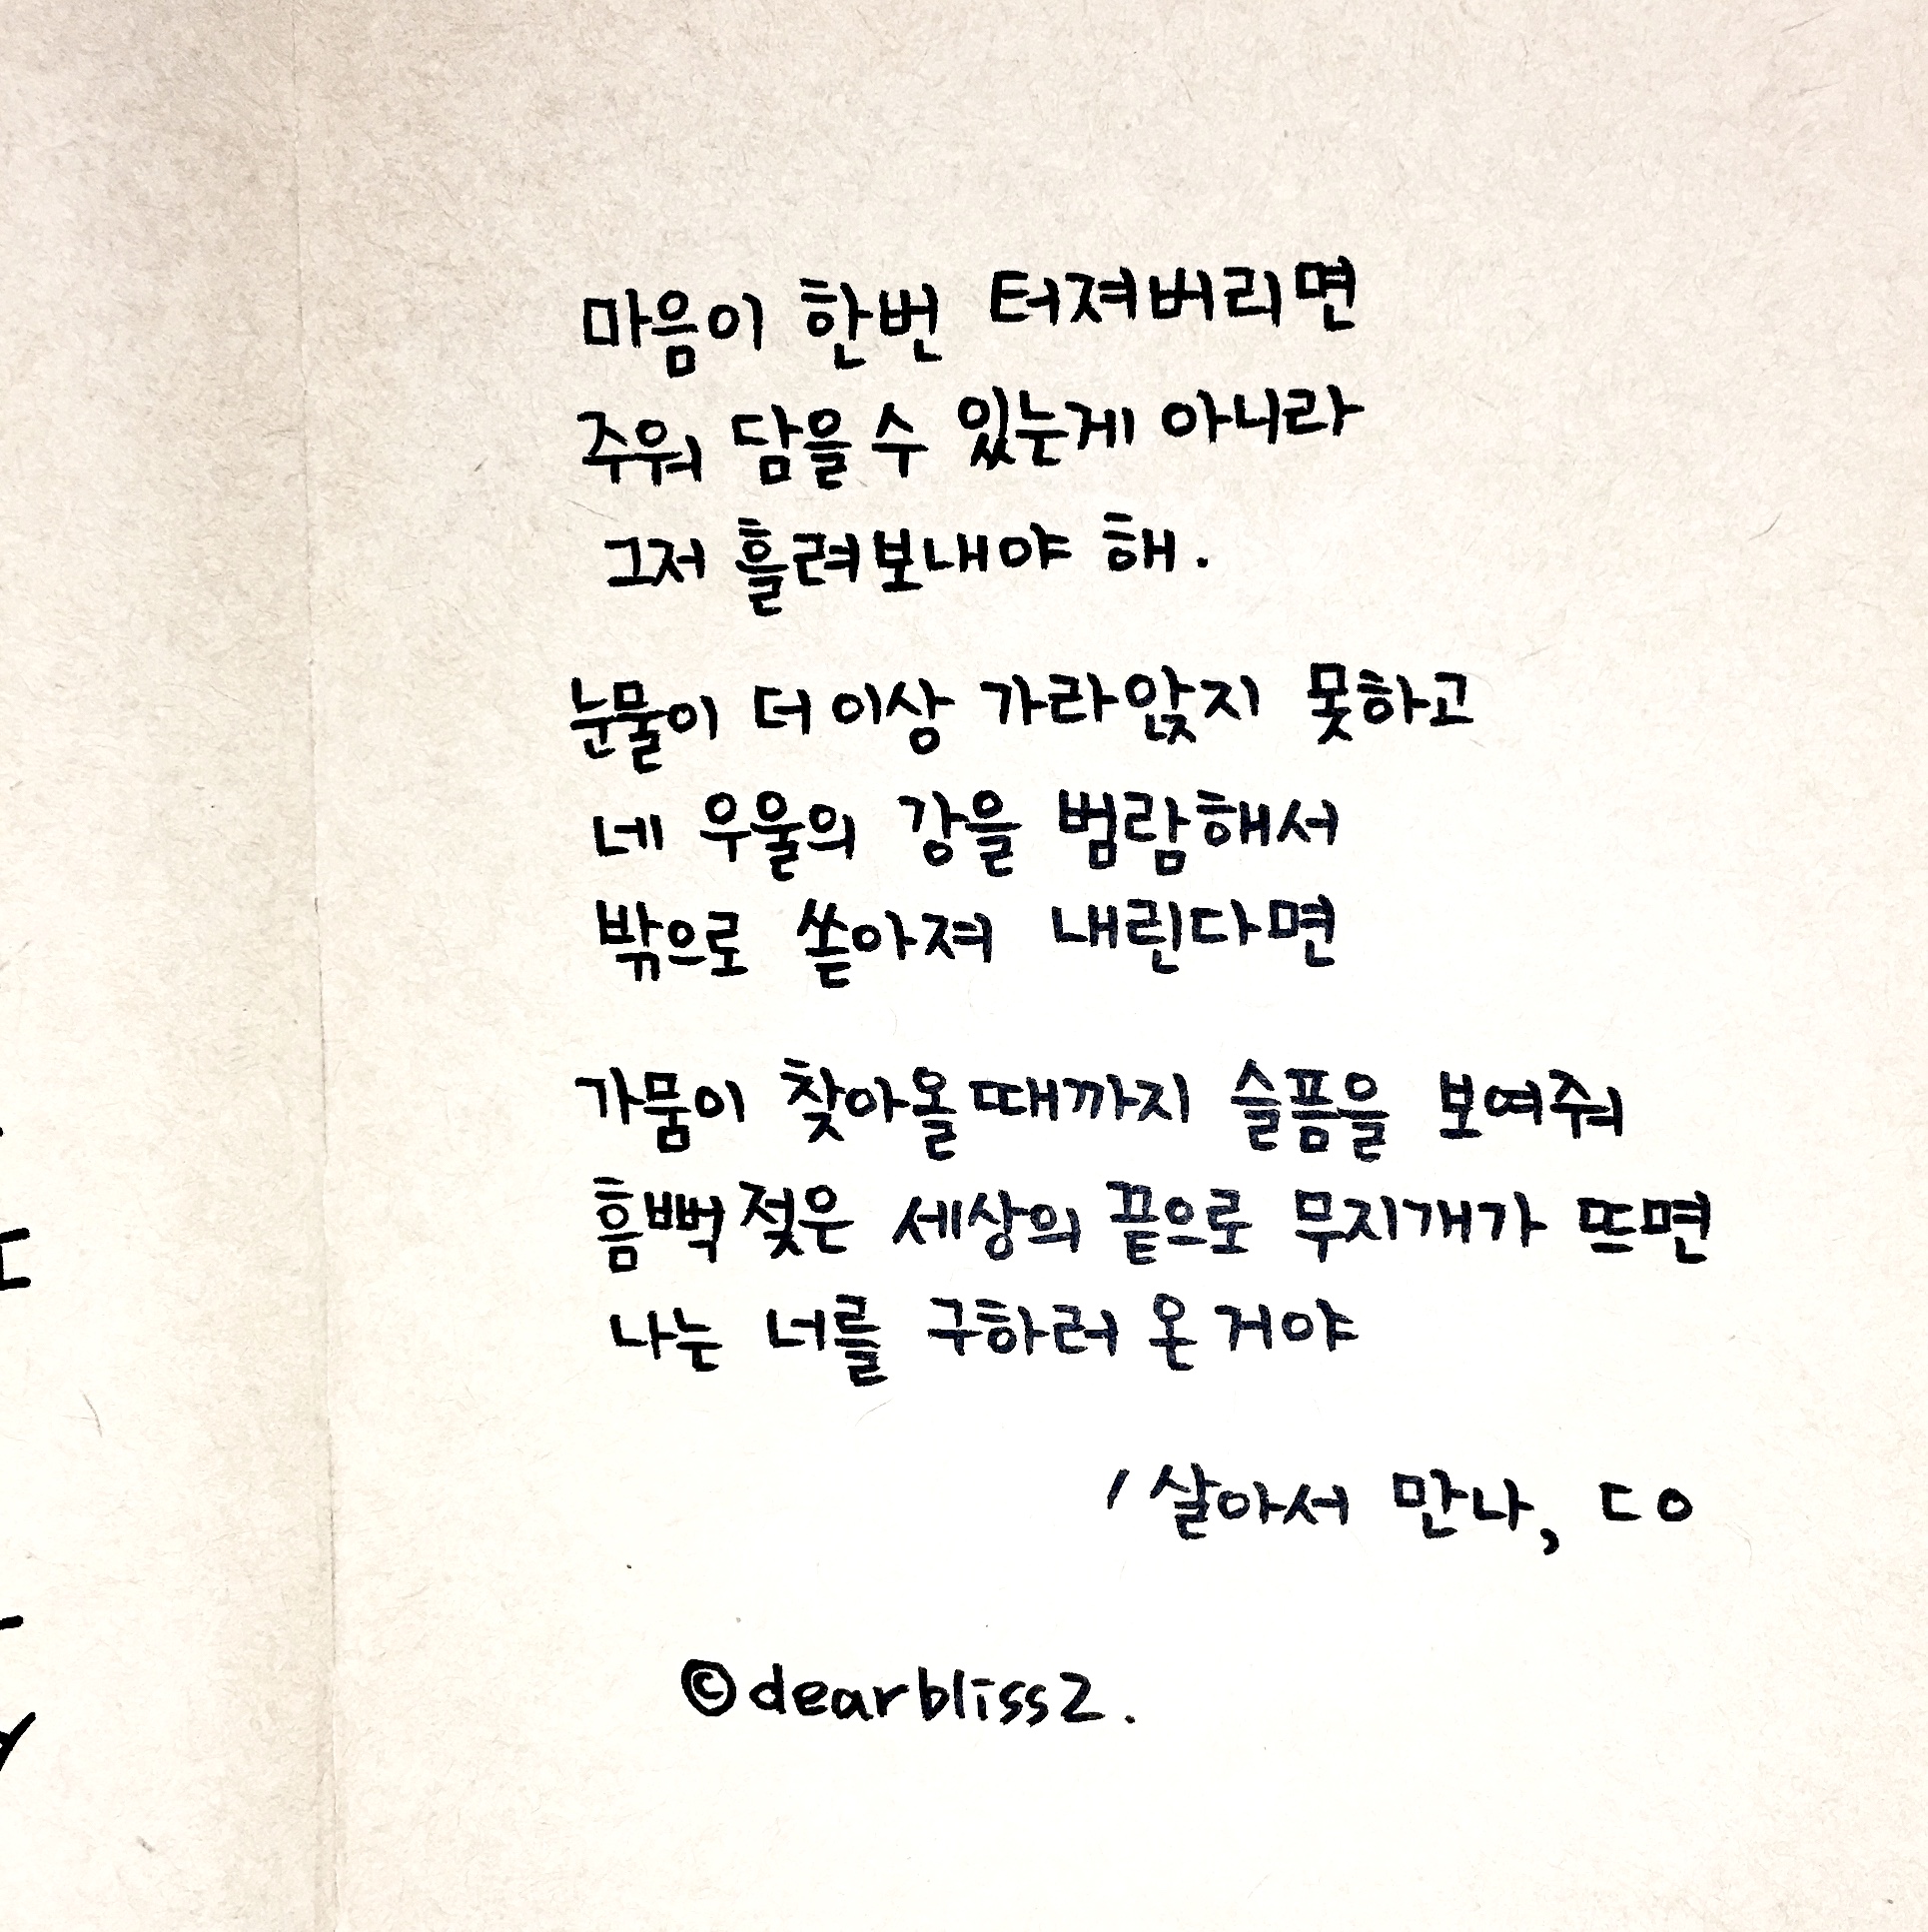 마음이 한번 터져버리면
주워 담을 수 있는게 아니라
그저 흘려보내야 해.
눈물이 더 이상 가라앉지 못하고
네 우울의 강을 범람해서
밖으로 쏟아져 내린다면
가뭄이 찾아올 때까지 슬픔을 보여줘
흠뻑 젖은 세상의 끝으로 무지개가 뜨면
나는 너를 구하러 온 거야
/ 살아서 만나, ㄷㅇ
©dearbliss2.